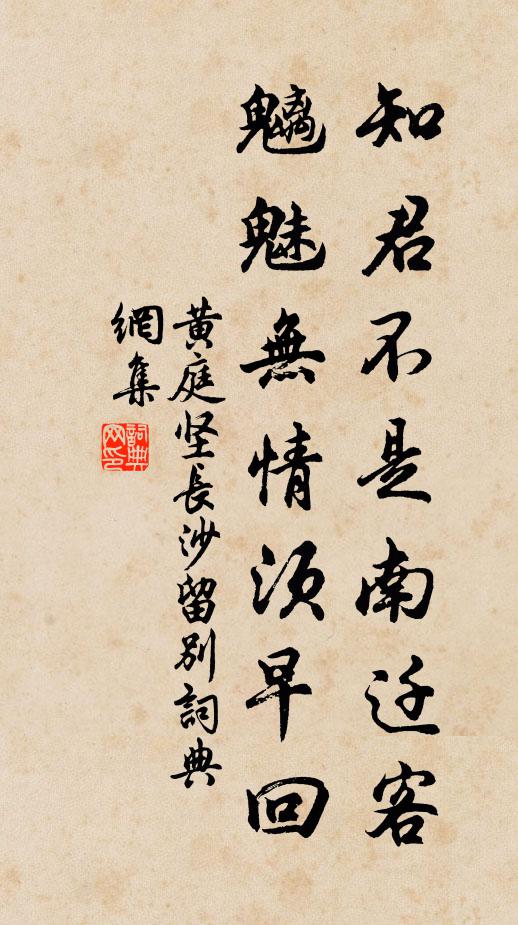 知君不是南迁客
魑魅無情須早回
黄庭坚長沙留別詞典
網集
詞典
网印